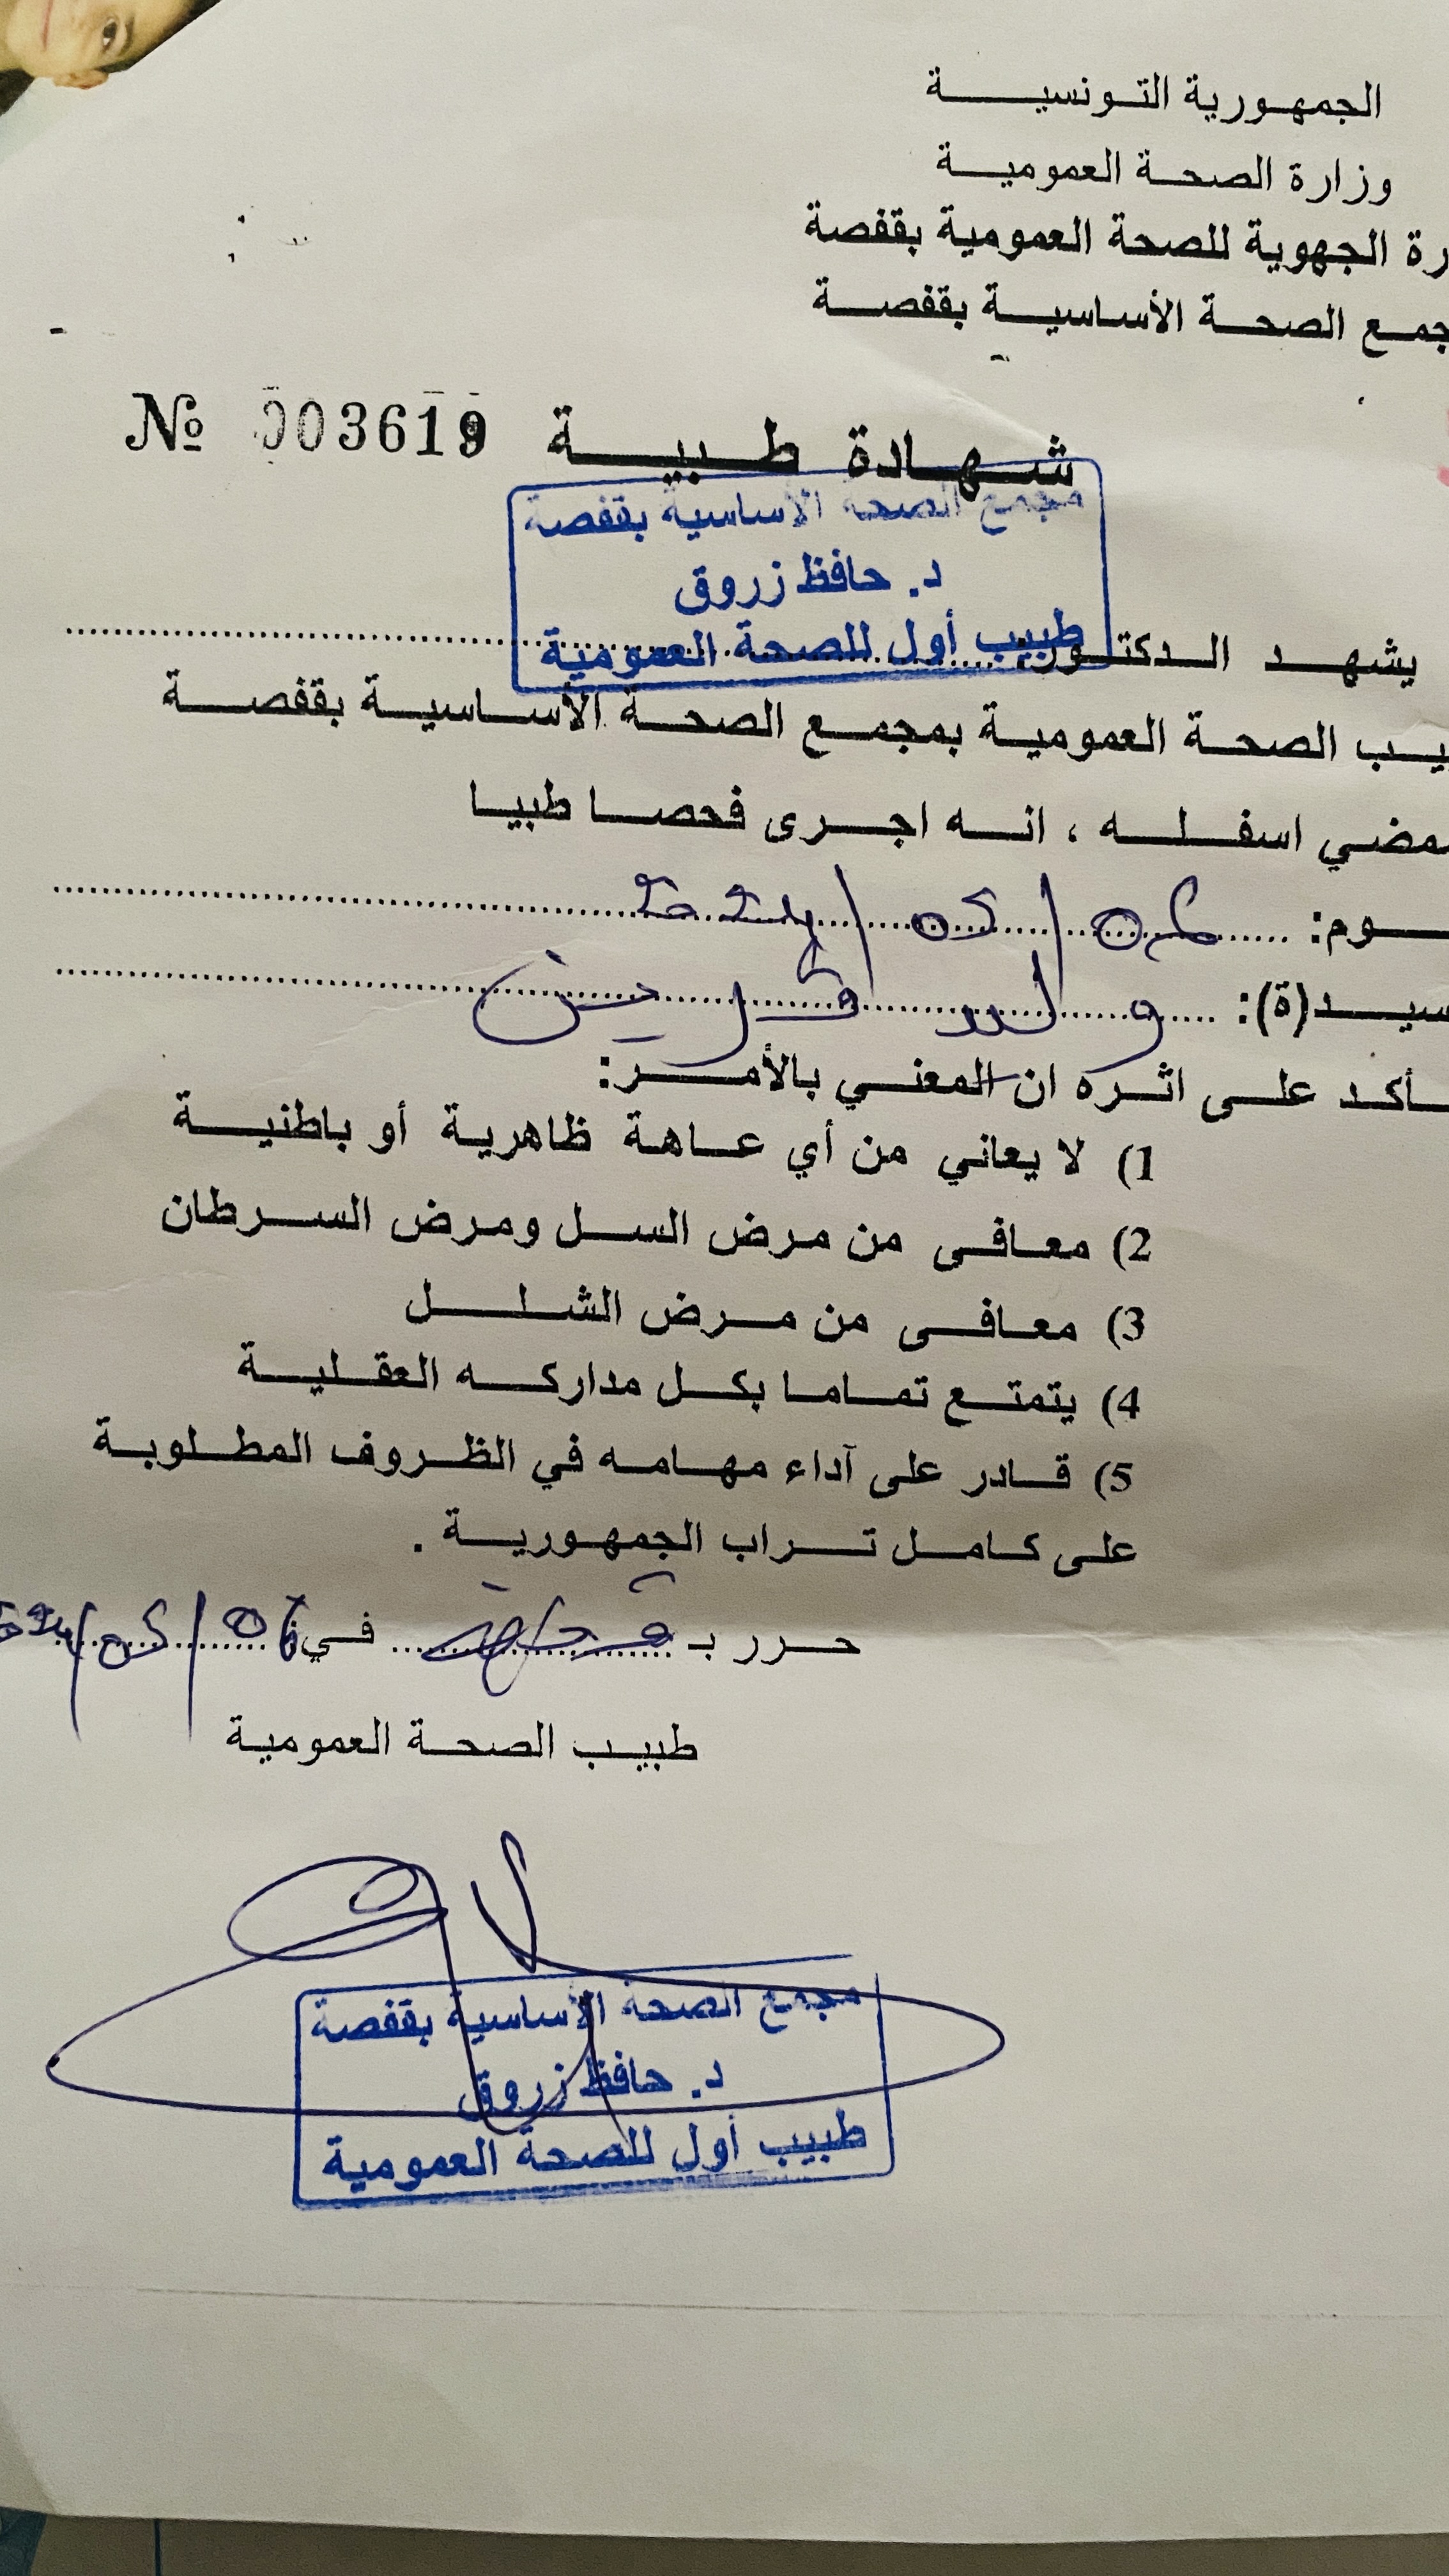 الجمهورية التونسية
وزارة الصحة العمومية
رة الجهوية للصحة العمومية بقفصة
جمع الصحة الأساسية بقفصة
شهادة طبية № 003619
مجمع الصحة الأساسية بقفصة
د. حافظ زروق
طبيب أول للصحة العمومية
يشهد الدكتور:
يب الصحة العمومية بمجمع الصحة الأساسية بقفصة
مضي اسفله ، انه اجرى فحصا طبيا
وم: 06/05/
سيد(ة):
أكد على اثره ان المعني بالأمر:
1) لا يعاني من أي عاهة ظاهرية أو باطنية
2) معافى من مرض السل ومرض السرطان
3) معافى من مرض الشلل
4) يتمتع تماما بكل مداركه العقلية
5) قادر على آداء مهامه في الظروف المطلوبة
على كامل تراب الجمهورية .
حرر بـ قفصة في: 06/05/
طبيب الصحة العمومية
مجمع الصحة الأساسية بقفصة
د. حافظ زروق
طبيب أول للصحة العمومية